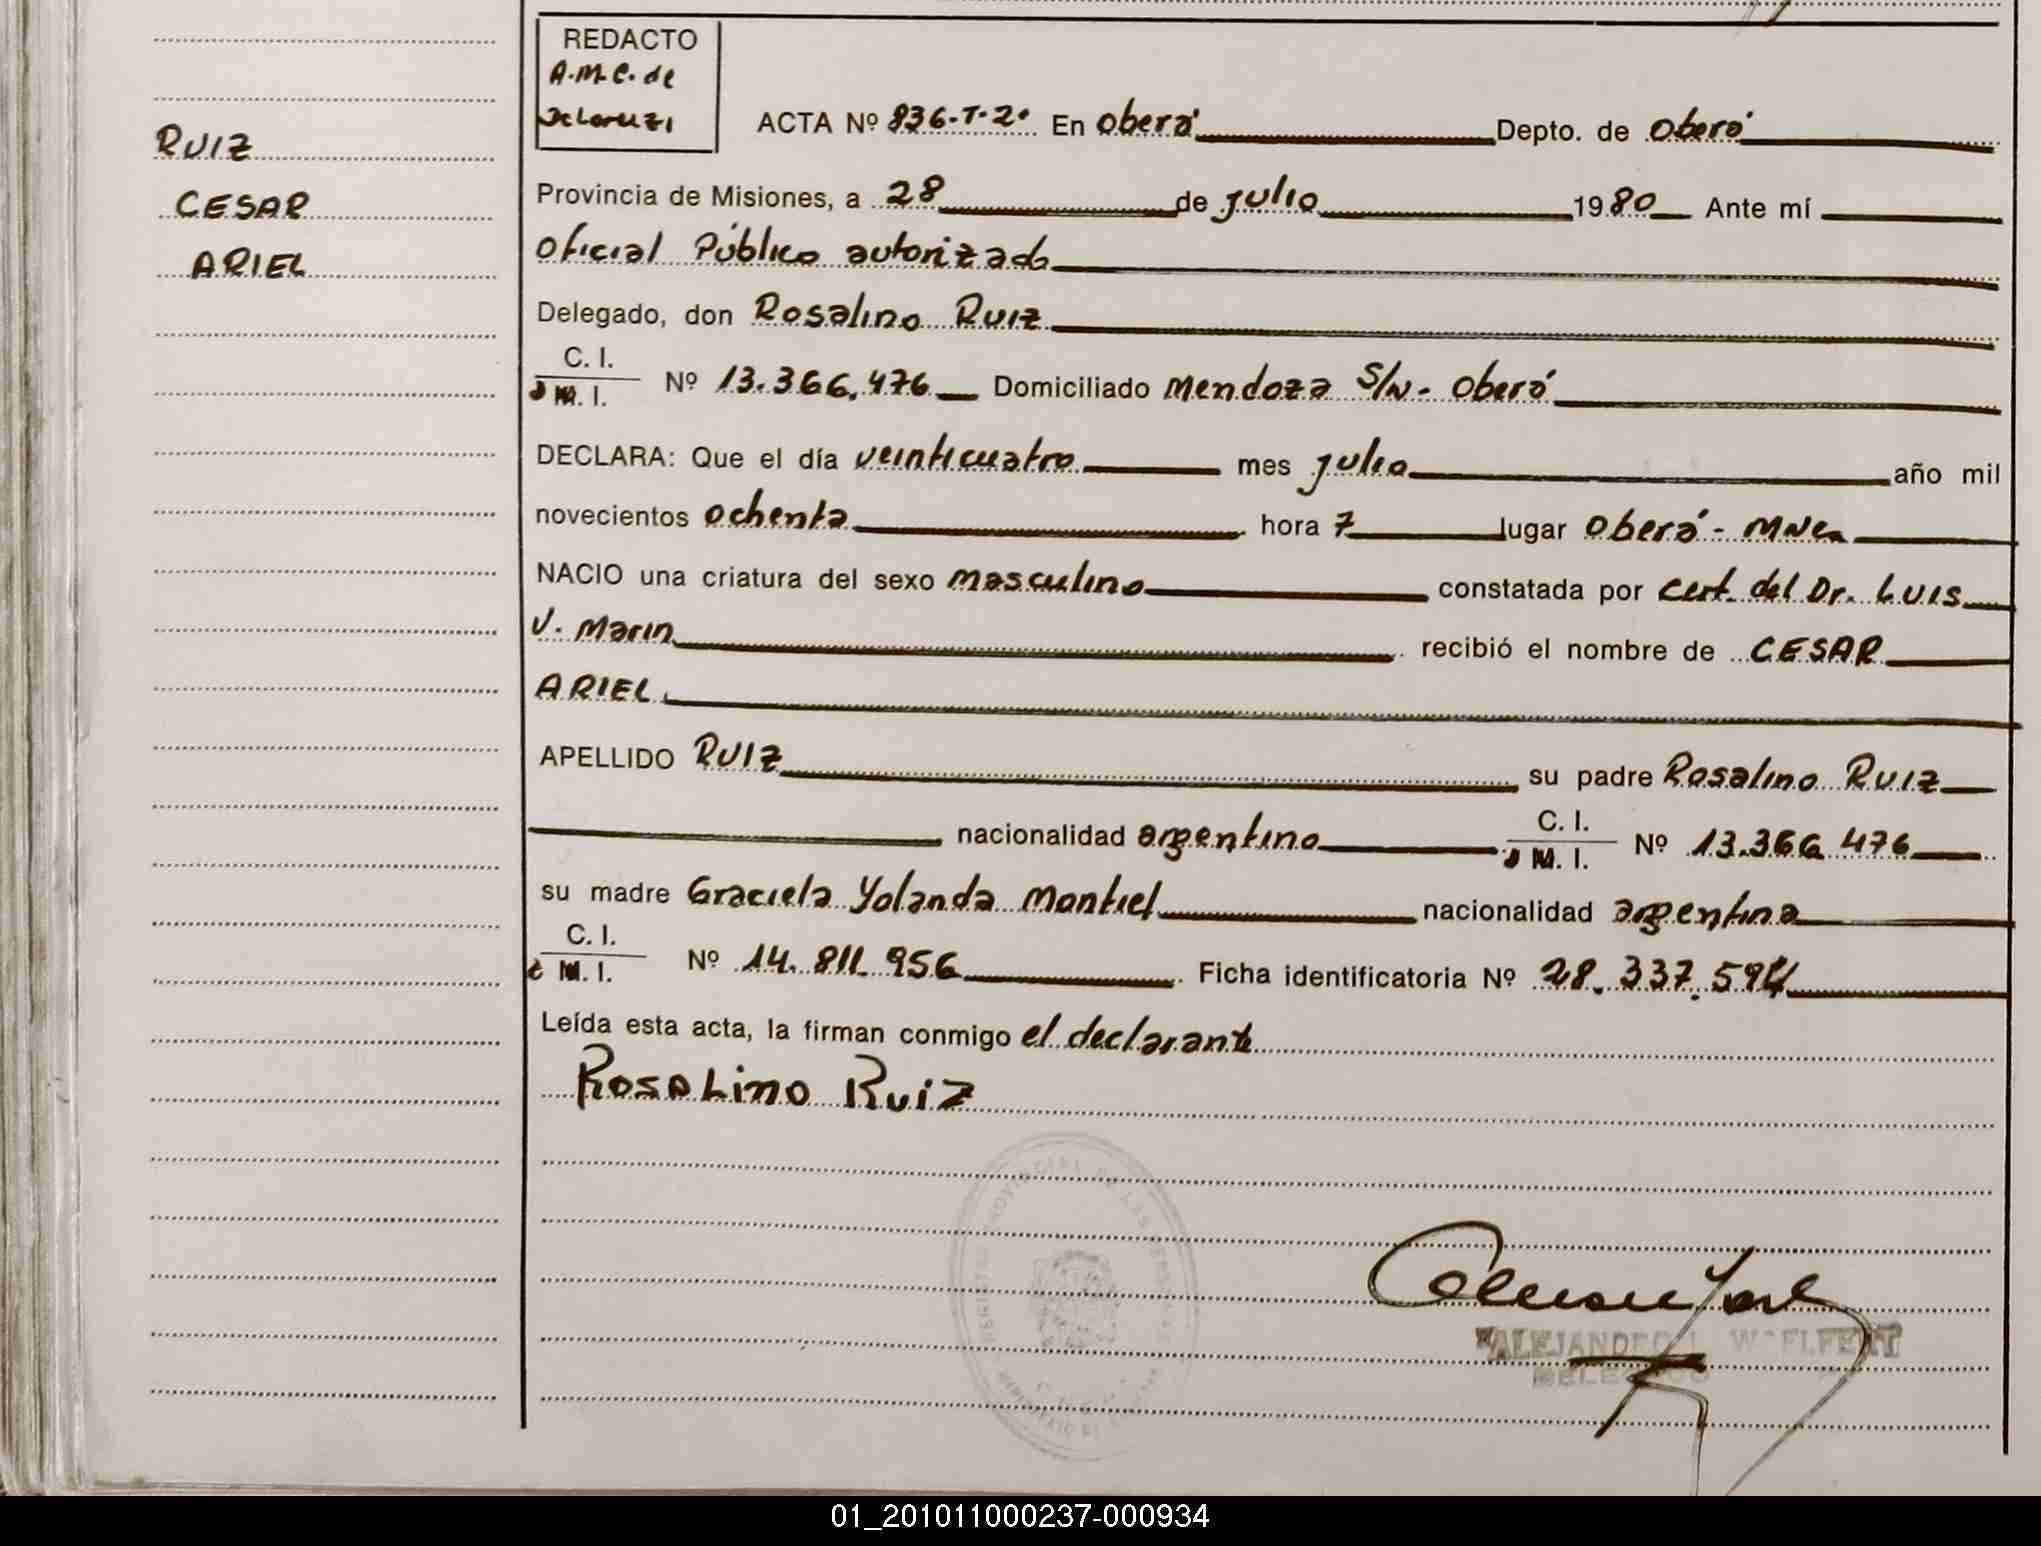 REDACTO
A.M.C. de
RUIZ
CESAR
ARIEL
ACTA Nº 836-T-2º En Oberá Depto. de Oberá
Provincia de Misiones, a 28 de julio 1980 Ante mí
Oficial Público autorizado
Delegado, don Rosalino Ruiz
C. I.
M. I. Nº 13.366.476 Domiciliado Mendoza S/N - Oberá
DECLARA: Que el día veinticuatro mes julio año mil
novecientos ochenta hora 7 lugar Oberá - Mnes
NACIO una criatura del sexo masculino constatada por cert. del Dr. Luis
V. Marin recibió el nombre de CESAR
ARIEL
APELLIDO RUIZ su padre Rosalino Ruiz
nacionalidad argentino C. I. M. I. Nº 13.366.476
su madre Graciela Yolanda Montiel nacionalidad argentina
C. I.
M. I. Nº 14.811.956 Ficha identificatoria Nº 28.337.594
Leída esta acta, la firman conmigo el declarante
Rosalino Ruiz
ALEJANDRO
01_201011000237-000934